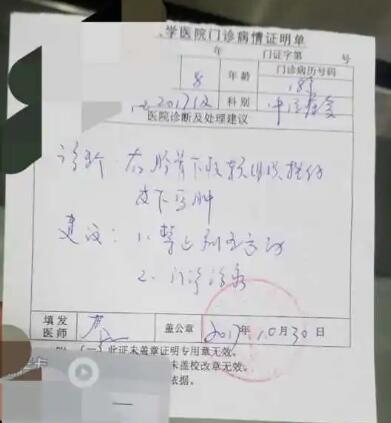 学医院门诊病情证明单
年 门证字第 号
8 年龄 门诊病历号码
科别
医院诊断及处理建议
诊断：右胫骨下段软组织挫伤
皮下血肿
建议：1、禁止剧烈运动
2、门诊治疗
填发医师 盖公章 2017年10月30日
附 (一)此证未盖章证明专用章无效。
未盖校改章无效。
依据。